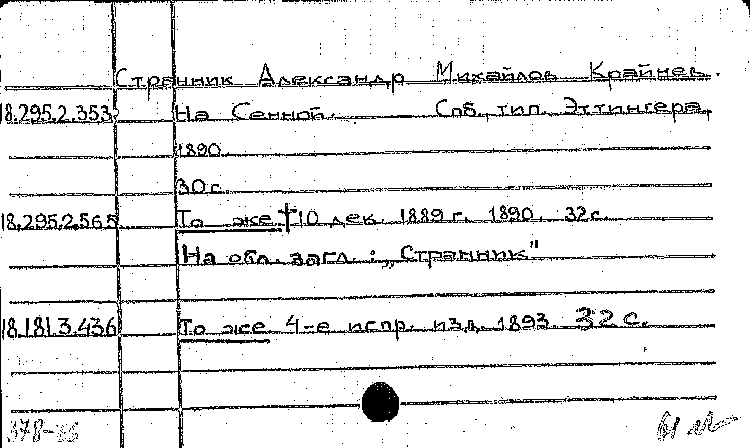 Странник Александр Михайлов Крайнев.
18.295.2.353 На Сенной. Спб, тип. Эттингера,
1890.
30 с.
18.295.2.565 То же †10 дек. 1889 г. 1890. 32 с.
На обл. загл.: „Странник"
18.181.3.436 То же 4-е испр. изд. 1893. 32 с.